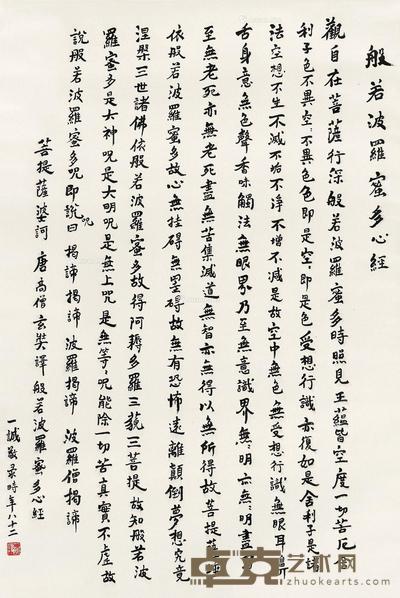 般若波羅蜜多心經
觀自在菩薩行深般若波羅蜜多時照見五蘊皆空度一切苦厄舍
利子色不異空々不異色色即是空々即是色受想行識亦復如是舍利子是諸
法空想不生不滅不垢不淨不增不減是故空中無色無受想行識無眼耳鼻
舌身意無色聲香味觸法無眼界乃至無意識界無々明亦無々明盡乃
至無老死亦無老死盡無苦集滅道無智亦無得以無所得故菩提薩埵
依般若波羅蜜多故心無挂碍無罣碍故無有恐怖遠離顛倒夢想究竟
涅槃三世諸佛依般若波羅蜜多故得阿耨多羅三藐三菩提故知般若波
羅蜜多是大神咒是大明咒是無上咒是無等々咒能除一切苦真實不虛故
說般若波羅蜜多咒即說咒曰 揭諦揭諦 波羅揭諦 波羅僧揭諦
菩提薩婆訶 唐高僧玄奘譯般若波羅蜜多心經
一誠敬录時年八十二
艺术网
zhuokearts.com